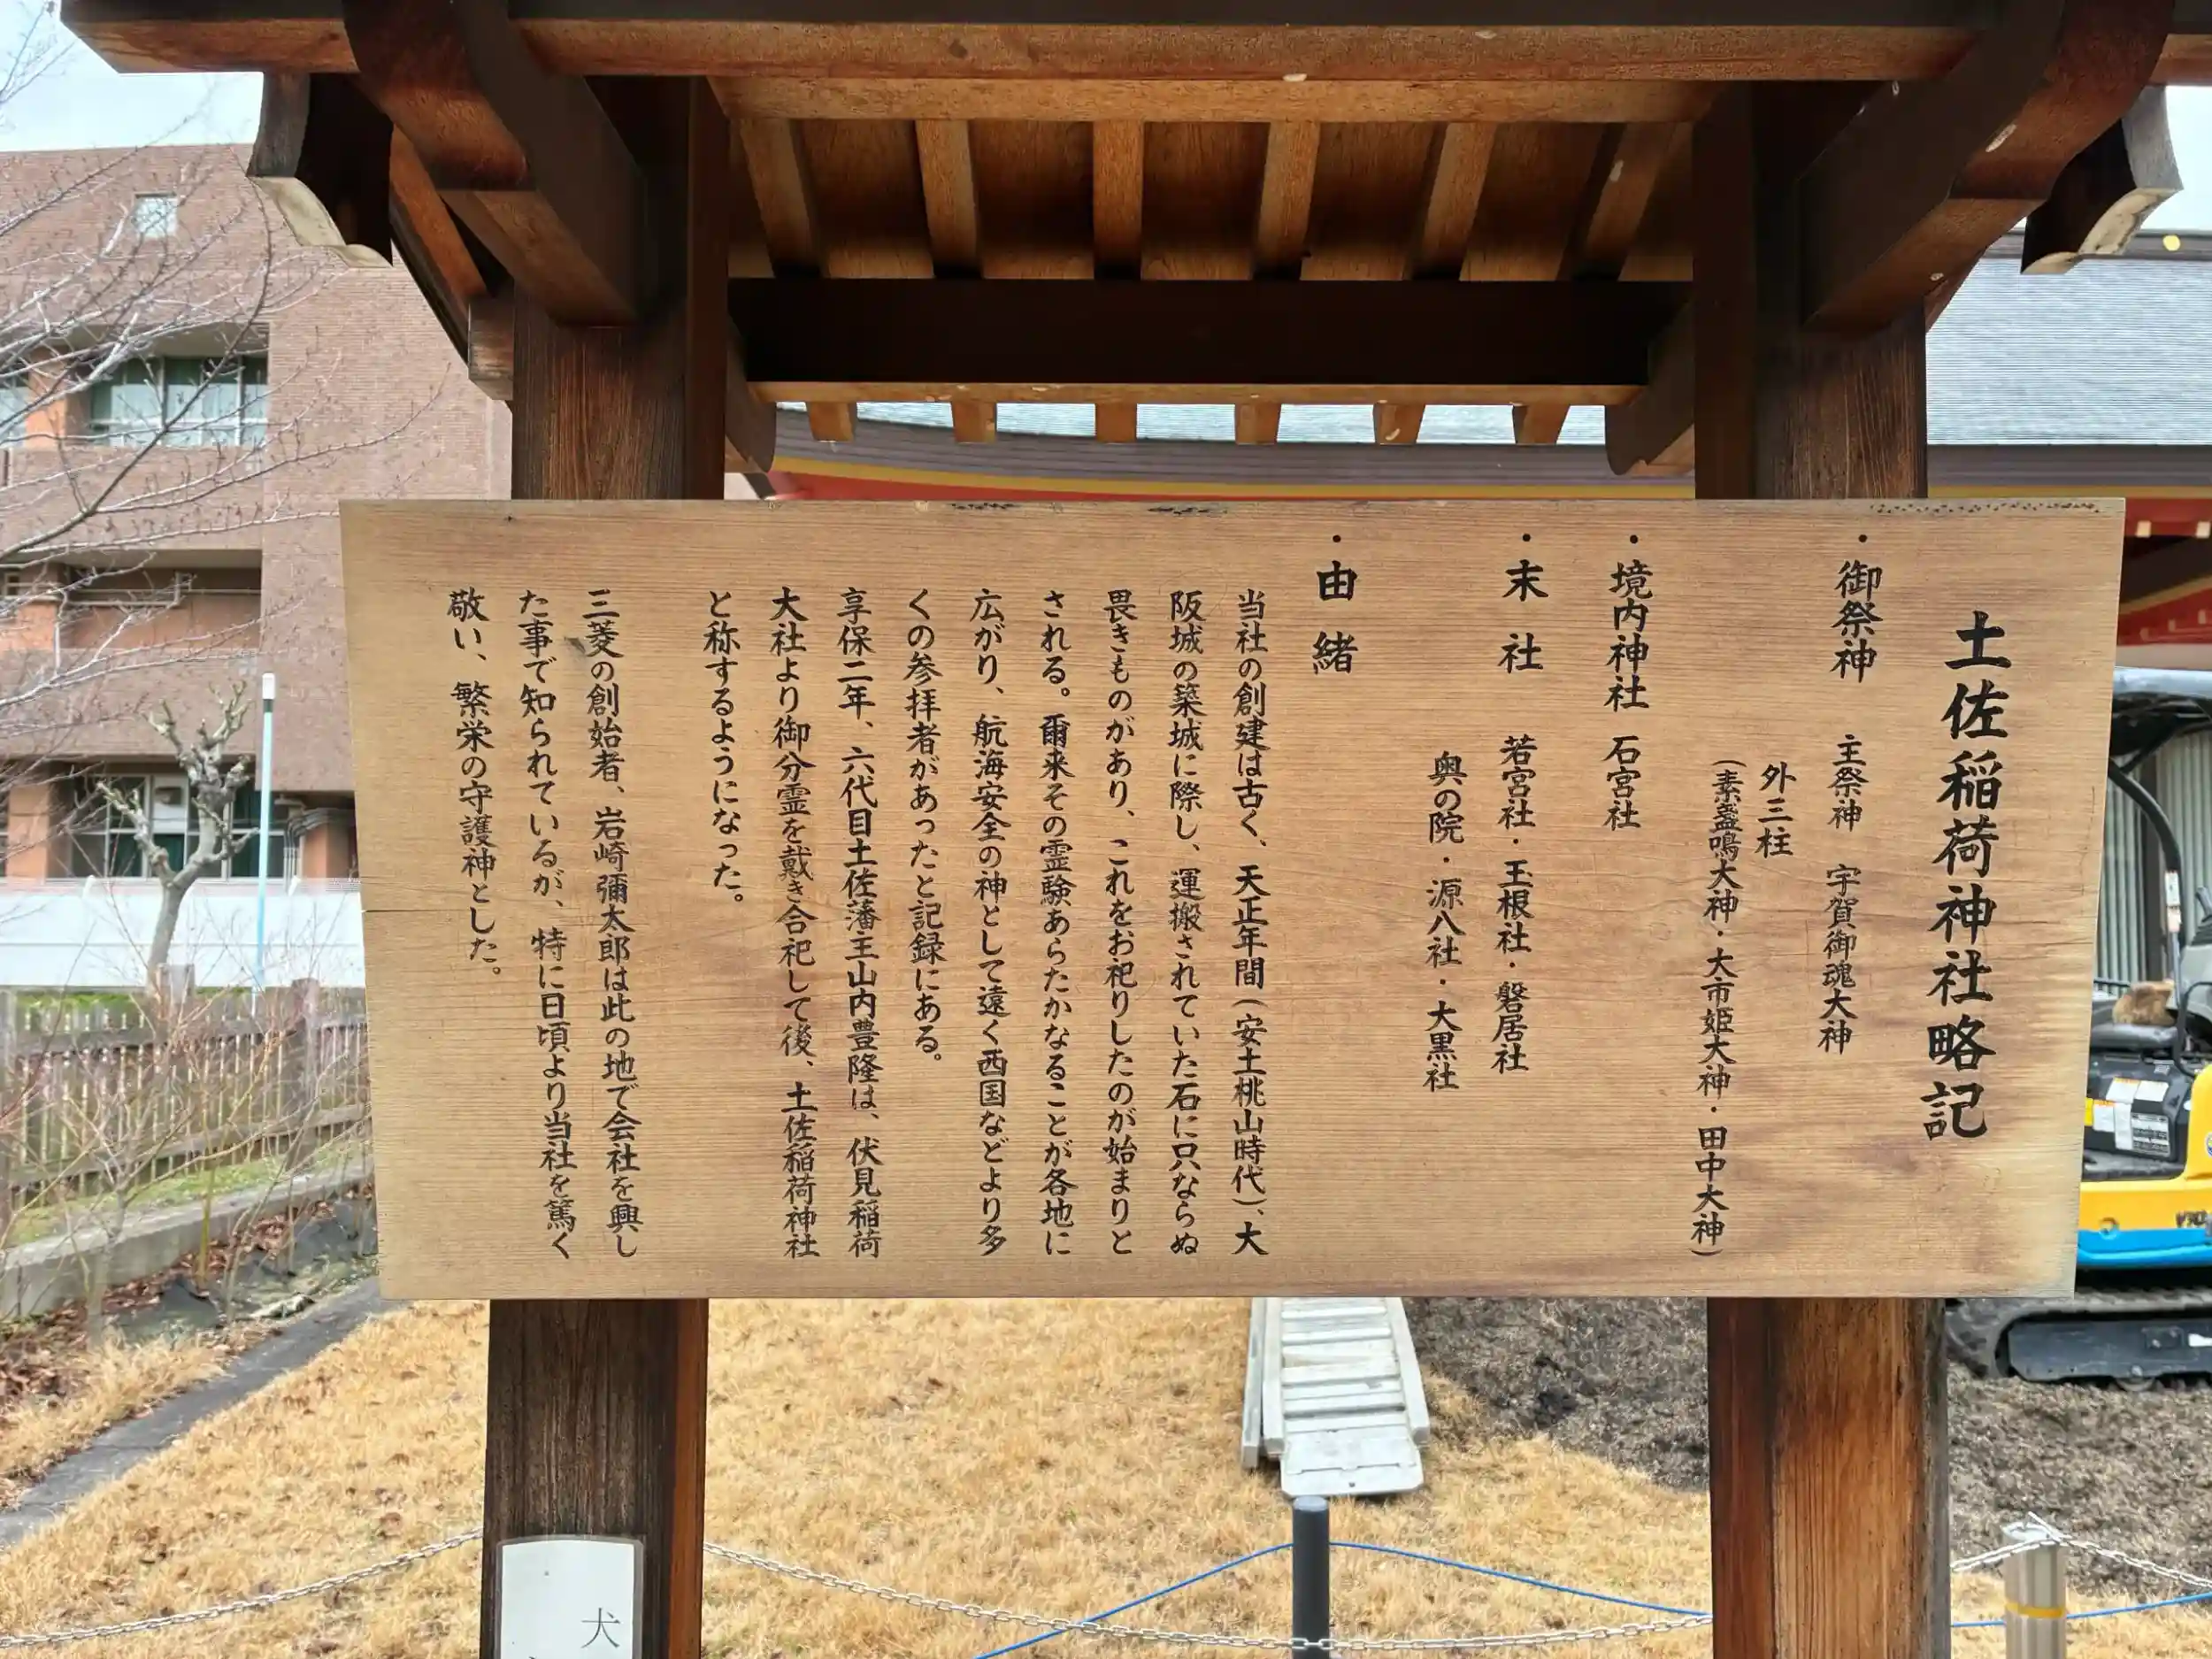 土佐稲荷神社略記
・御祭神 主祭神 宇賀御魂大神
外三柱
(素盞鳴大神・大市姫大神・田中大神)
・境内神社 石宮社
・末社 若宮社・玉根社・磐居社
奥の院・源八社・大黒社
・由緒
当社の創建は古く、天正年間(安土桃山時代)、大
阪城の築城に際し、運搬されていた石に只ならぬ
畏きものがあり、これをお祀りしたのが始まりと
される。爾来その霊験あらたかなることが各地に
広がり、航海安全の神として遠く西国などより多
くの参拝者があったと記録にある。
享保二年、六代目土佐藩主山内豊隆は、伏見稲荷
大社より御分霊を戴き合祀して後、土佐稲荷神社
と称するようになった。
三菱の創始者、岩崎彌太郎は此の地で会社を興し
た事で知られているが、特に日頃より当社を篤く
敬い、繁栄の守護神とした。
犬